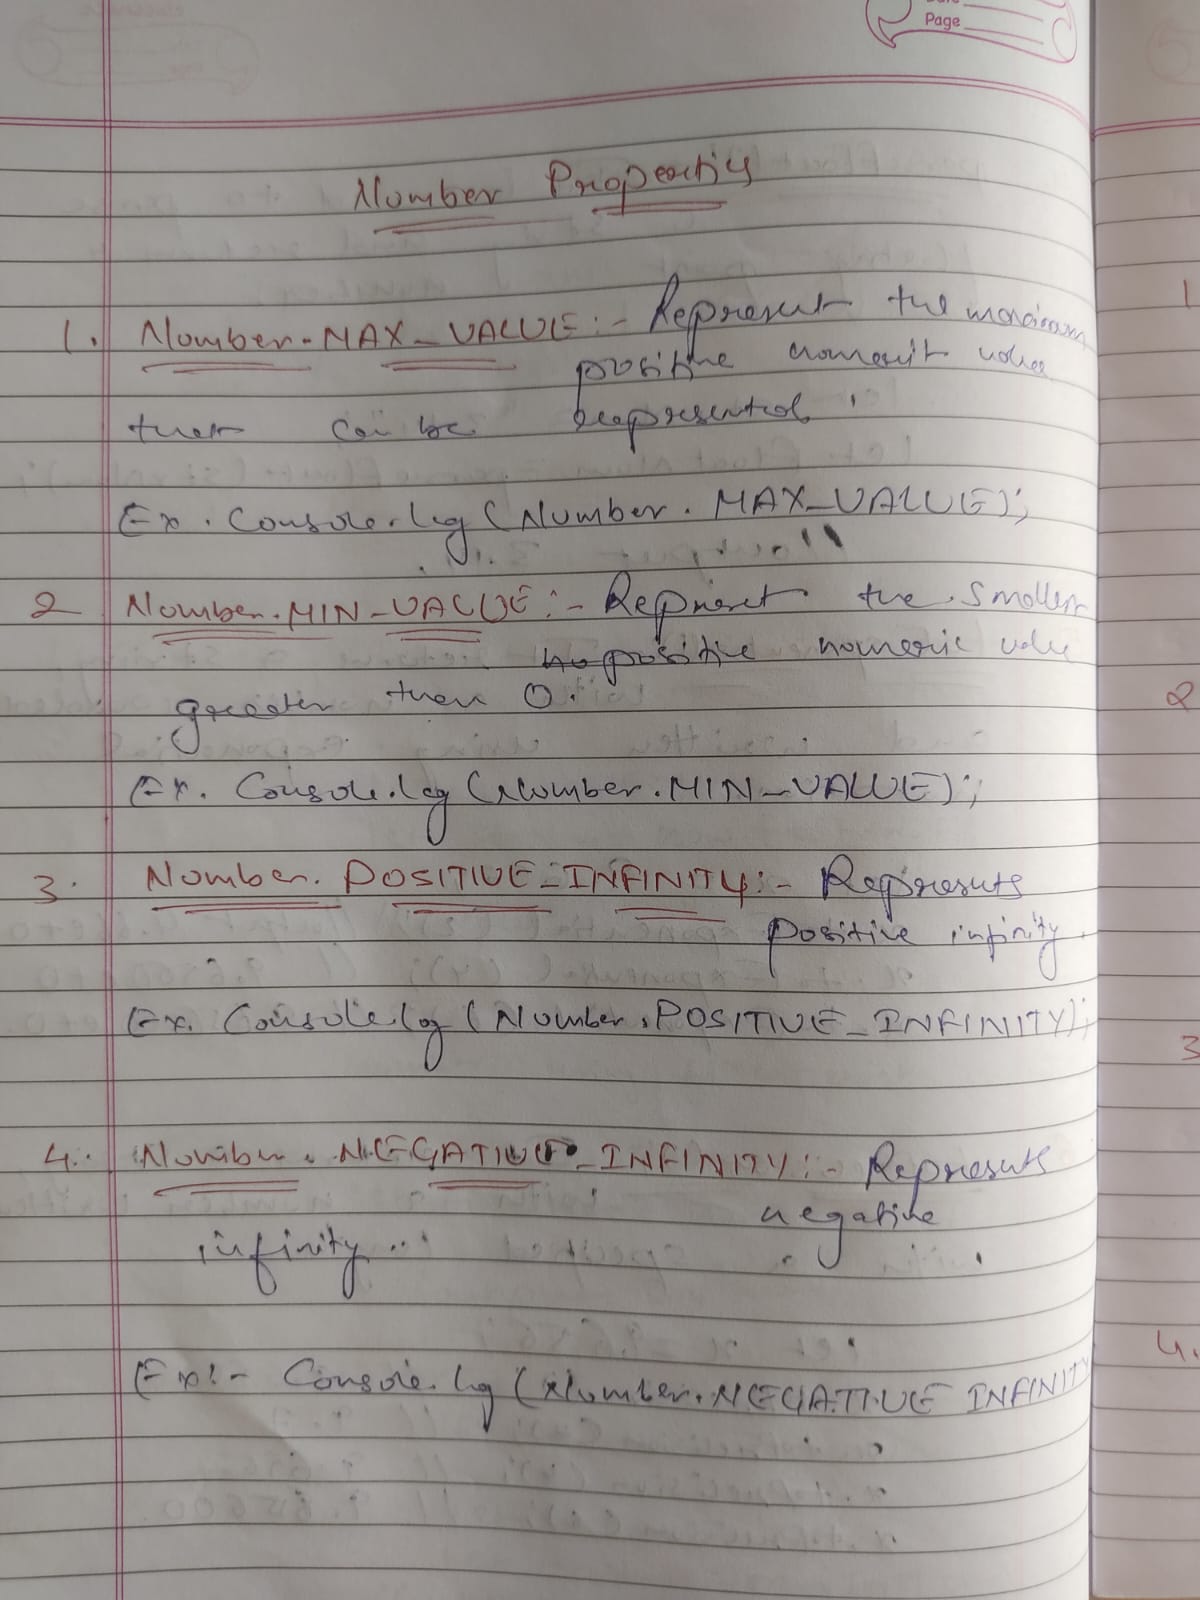 Page
Number Properties
1. Number.MAX_VALUE:- Represent the maximum
positive numerit value
that can be represented.
Ex. Console.log(Number.MAX_VALUE);
2 Number.MIN_VALUE:- Represent the smallest
positive numeric value
greater than 0.
Ex. Console.log(Number.MIN_VALUE);
3. Number.POSITIVE_INFINITY:- Represents
positive infinity.
Ex. Console.log(Number.POSITIVE_INFINITY);
4. Number.NEGATIVE_INFINITY:- Represents
negative
infinity
Ex:- Console.log(Number.NEGATIVE INFINITY
1
2
3
4.